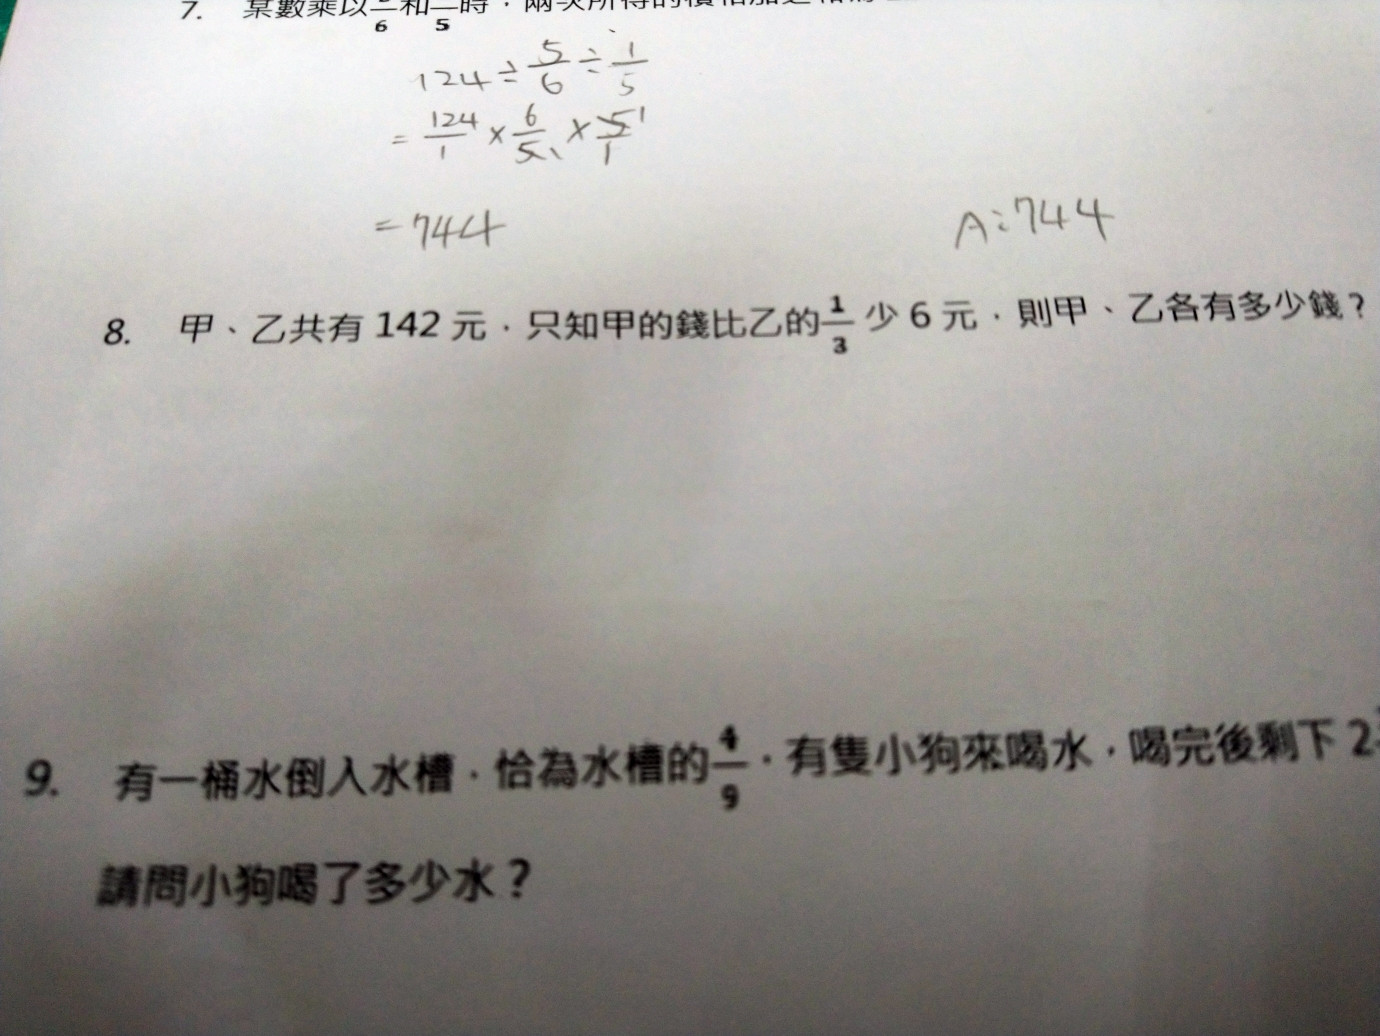 7. 某數乘以 /6 和 /5 時，兩次所得的積相加之和為
124÷5/6÷1/5
=124/1×6/5 1×5 1/1
=744
A:744
8. 甲、乙共有 142 元，只知甲的錢比乙的1/3 少 6 元，則甲、乙各有多少錢？
9. 有一桶水倒入水槽，恰為水槽的4/9，有隻小狗來喝水，喝完後剩下 2
請問小狗喝了多少水？